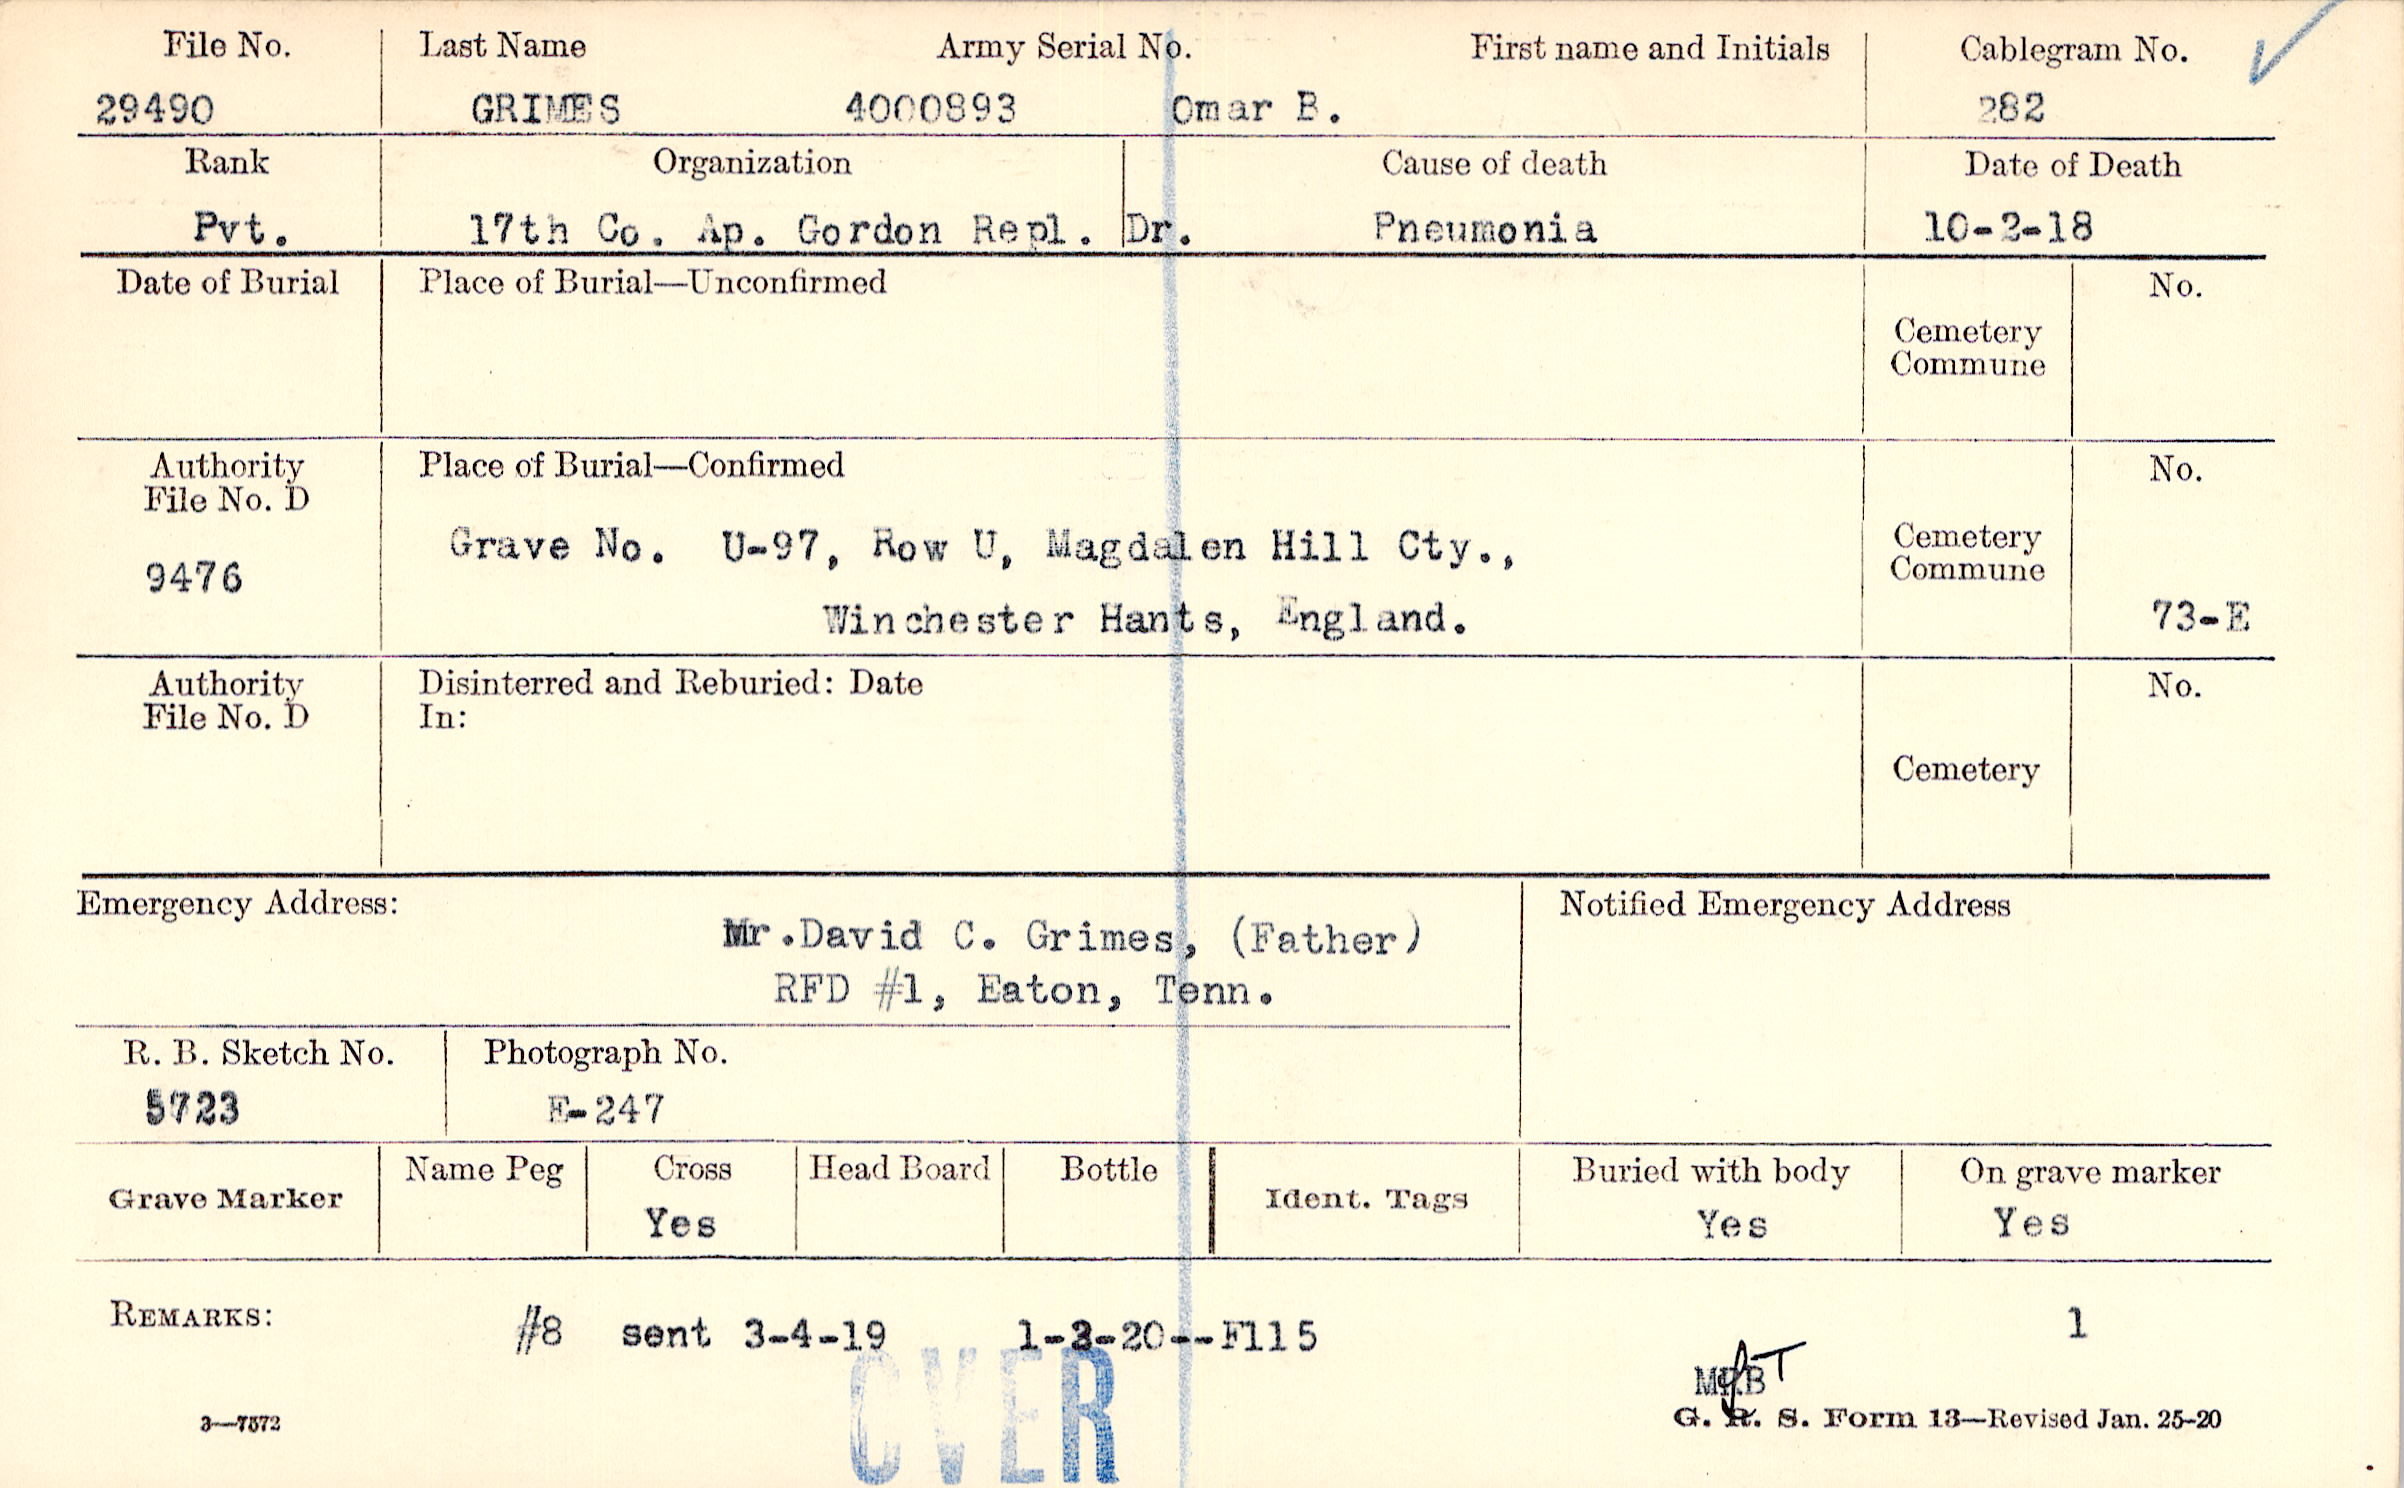 File No. Last Name Army Serial No. First name and Initials Cablegram No.
29490 GRIMES 4000893 Omar B. 282
Rank Organization Cause of death Date of Death
Pvt. 17th Co. Ap. Gordon Repl. Dr. Pneumonia 10-2-18
Date of Burial Place of Burial—Unconfirmed No.
Cemetery
Commune
Authority Place of Burial—Confirmed No.
File No. D
Grave No. U-97, Row U, Magdalen Hill Cty.,
Cemetery
Commune
9476
Winchester Hants, England. 73-E
Authority Disinterred and Reburied: Date No.
File No. D In:
Cemetery
Emergency Address: Notified Emergency Address
Mr.David C. Grimes, (Father)
RFD #1, Eaton, Tenn.
R. B. Sketch No. Photograph No.
5723 E-247
Name Peg Cross Head Board Bottle Buried with body On grave marker
Grave Marker Ident. Tags
Yes Yes Yes
REMARKS: #8 sent 3-4-19 1-3-20--F115 1
OVER
3—7572 G. R. S. Form 13—Revised Jan. 25-20